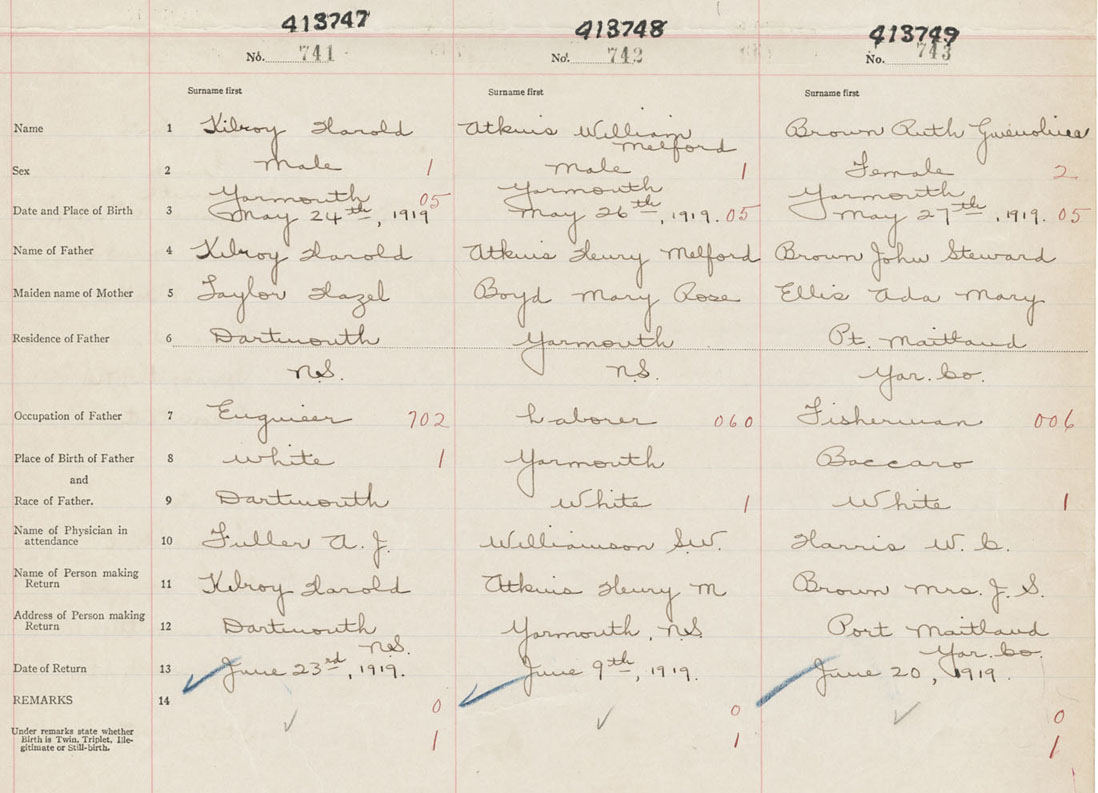 413747 413748 413749
No. 741 No. 742 No. 743
Surname first Surname first Surname first
Name 1 Kilroy Harold Atkins William Melford Brown Ruth
Sex 2 Male 1 Male 1 Female 2
Yarmouth 05 Yarmouth Yarmouth
Date and Place of Birth 3 May 24th, 1919 May 26th, 1919. 05 May 27th, 1919. 05
Name of Father 4 Kilroy Harold Atkins Henry Melford Brown John Steward
Maiden name of Mother 5 Taylor Hazel Boyd Mary Rose Ellis Ada Mary
Residence of Father 6 Dartmouth Yarmouth Pt. Maitland
N.S. N.S. Yar. Co.
Occupation of Father 7 Engineer 702 Laborer 060 Fisherman 006
Place of Birth of Father 8 White 1 Yarmouth Baccaro
and
Race of Father. 9 Dartmouth White 1 White 1
Name of Physician in
attendance 10 Fuller A. J. Williamson S.W. Harris W. C.
Name of Person making
Return 11 Kilroy Harold Atkins Henry M Brown Mrs. J. S.
Address of Person making
Return 12 Dartmouth Yarmouth, N.S. Port Maitland
N.S. Yar. Co.
Date of Return 13 June 23rd, 1919. June 9th, 1919. June 20, 1919.
REMARKS 14 0 0 0
Under remarks state whether
Birth is Twin, Triplet, Ille-
gitimate or Still-birth. 1 1 1